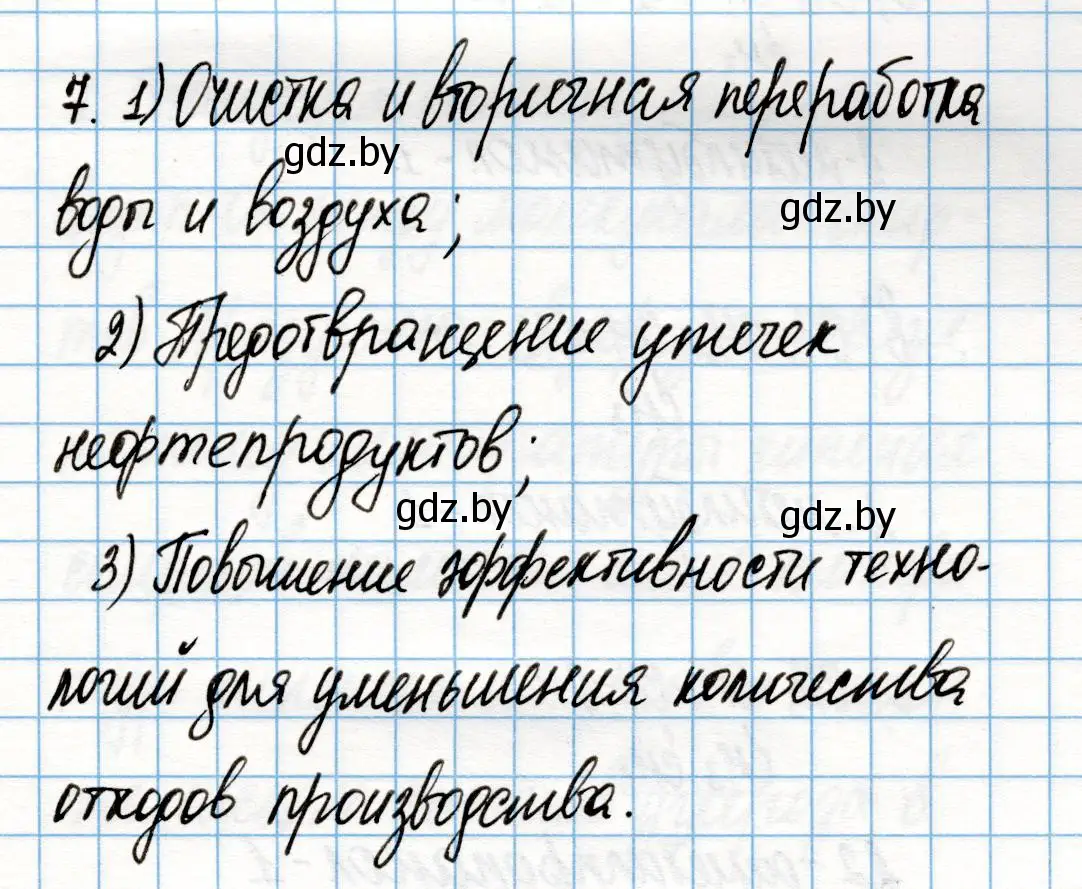 7. 1) Очистка и вторичная переработка
gdz.by
воды и воздуха;
gdz.by
2) Предотвращение утечек
нефтепродуктов;
gdz.by
gdz.by
3) Повышение эффективности техно-
логий для уменьшения количества
отходов производства.